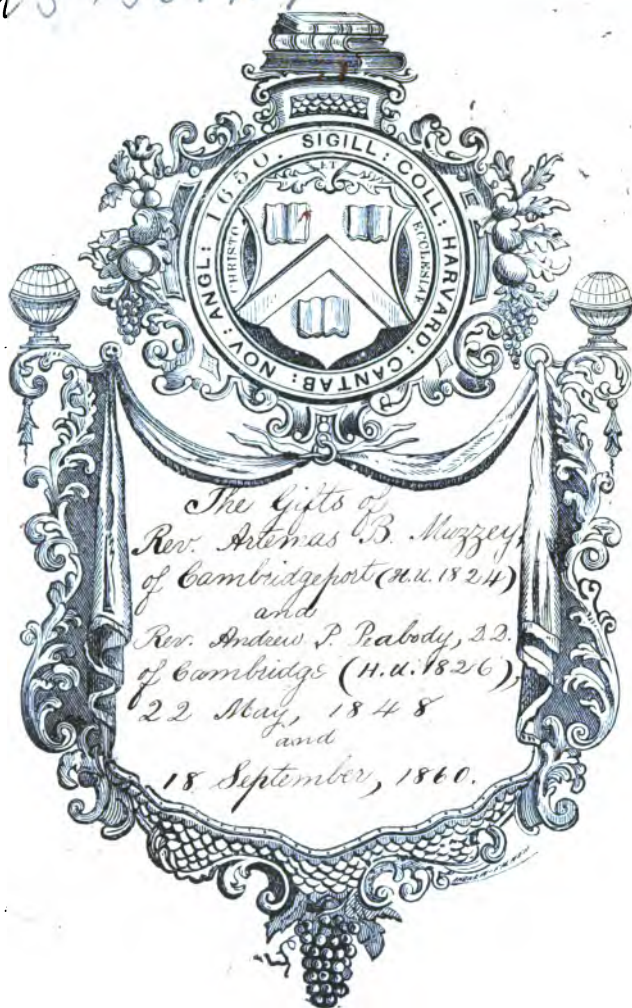 SIGILL: COLL: HARVARD: CANTAB: NOV: ANGL: 1650.
CHRISTO ET ECCLESIAE
The Gifts of
Rev. Artemas B. Muzzey,
of Cambridgeport (H.U. 1824)
and
Rev. Andrew P. Peabody, D.D.
of Cambridge (H.U. 1826),
22 May, 1848
and
18 September, 1860.